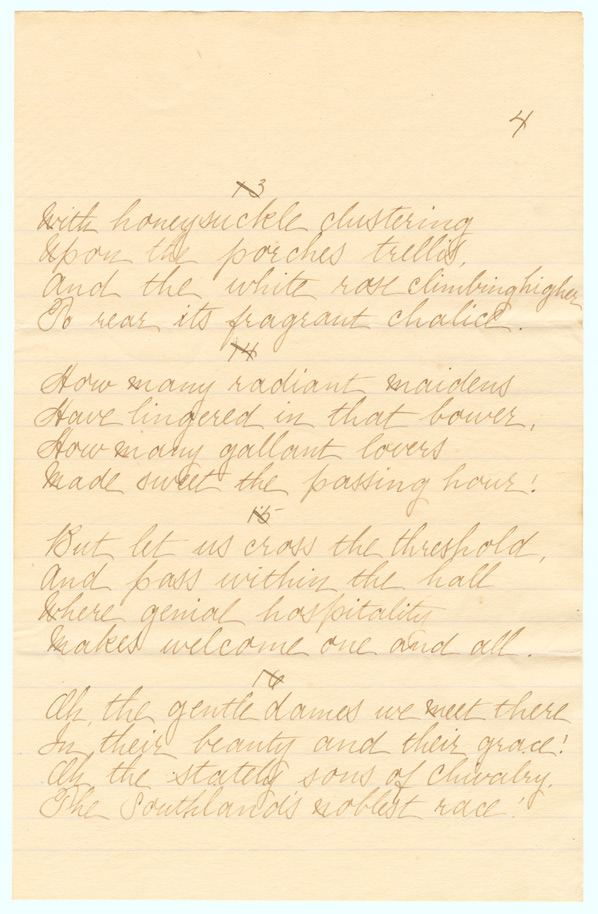 4
13
With honeysuckle clustering
Upon the porches trellis,
And the white rose climbing higher
To rear its fragrant chalice.
14
How many radiant maidens
Have lingered in that bower,
How many gallant lovers
Made sweet the passing hour!
15
But let us cross the threshold,
And pass within the hall
Where genial hospitality
Makes welcome one and all.
16
Ah, the gentle dames we meet there
In their beauty and their grace!
Ah the stately sons of chivalry,
The Southland's noblest race!